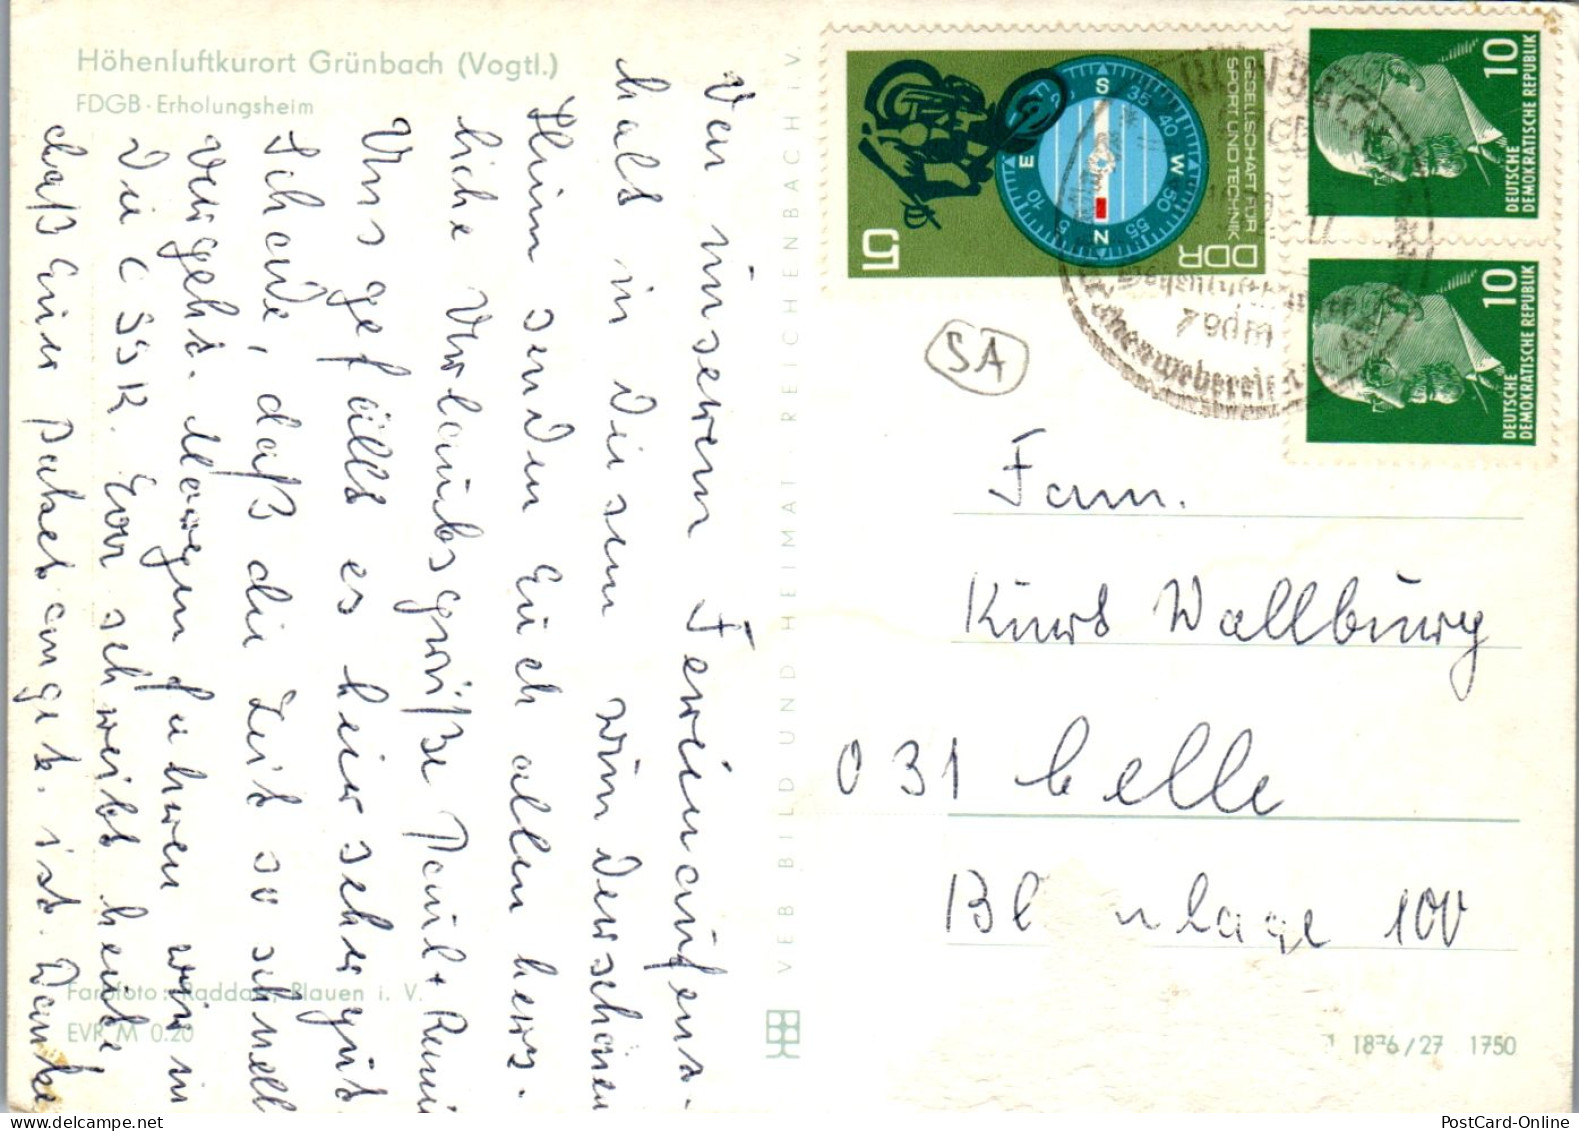 Höhenluftkurort Grünbach (Vogtl.)
FDGB-Erholungsheim
Von unserem Ferienaufent-
halt in diesem wunderschönen
Heim senden Euch allen herz-
liche Urlaubsgrüße Paul +
Uns gefällt es hier sehr gut.
Schade, daß die Zeit so schnell
vergeht. Morgen fahren wir in
die CSSR. Eva schreibt heute
daß Euer Paket angek. ist. Danke
Farbfoto: Raddatz, Plauen i. V.
EVP M 0.20
VEB BILD UND HEIMAT REICHENBACH i. V.
GESELLSCHAFT FÜR
SPORT UND TECHNIK
DDR
5
S
35
40
W
50
55
N
5
10
E
10
DEUTSCHE
DEMOKRATISCHE REPUBLIK
10
DEUTSCHE
DEMOKRATISCHE REPUBLIK
SA
Fam.
Kurt Wallburg
031 Celle
Bl nlage 100
1876/27 1750